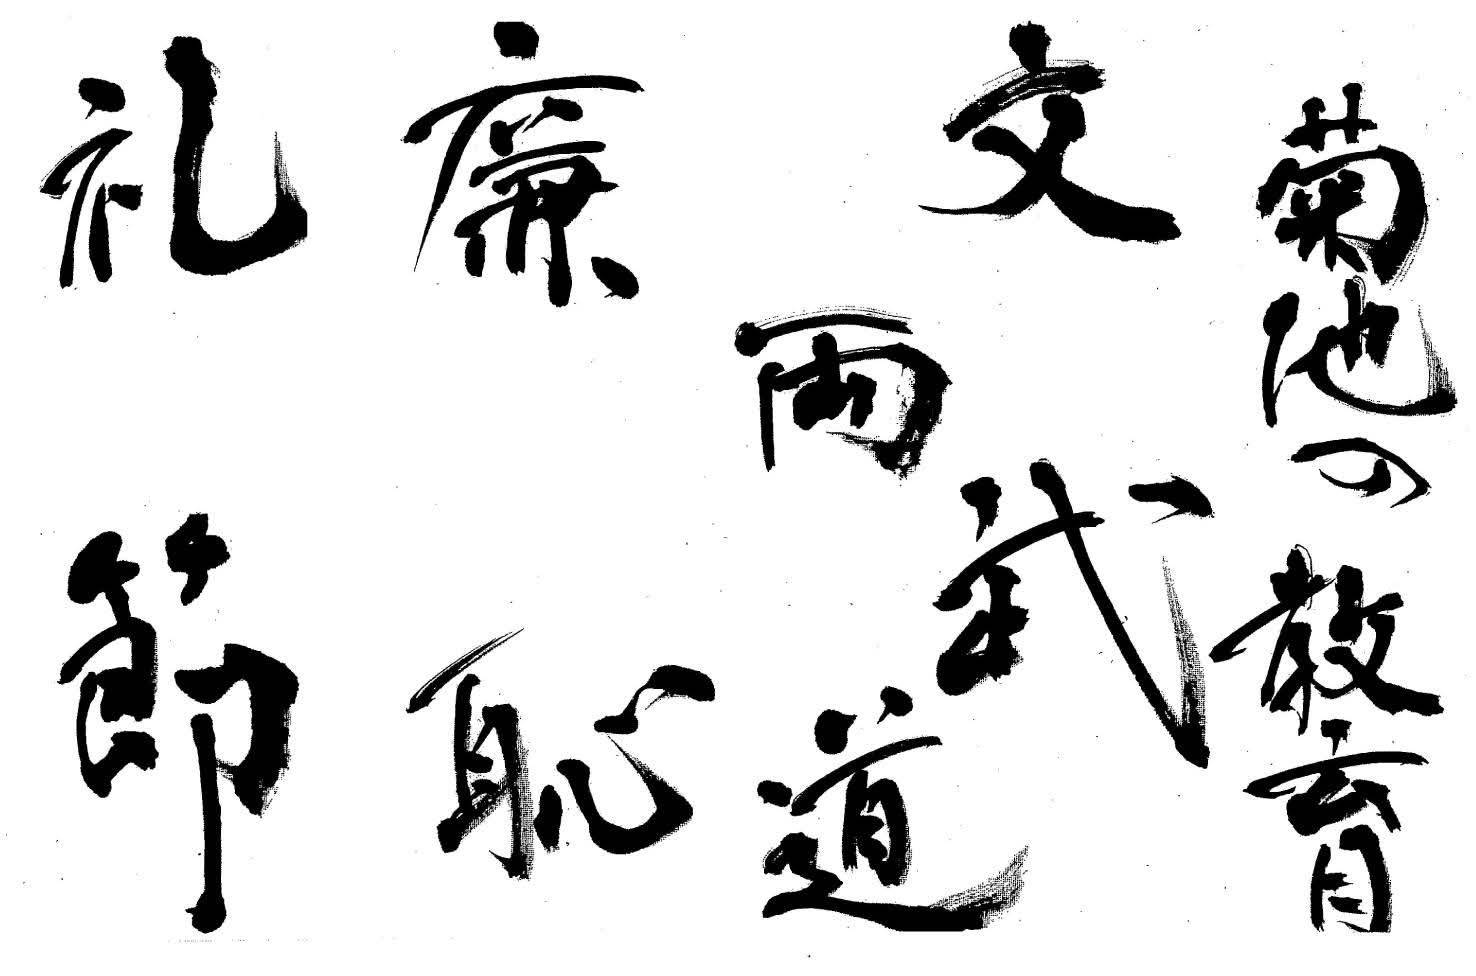 菊池の教育
文武両道
廉恥
礼節